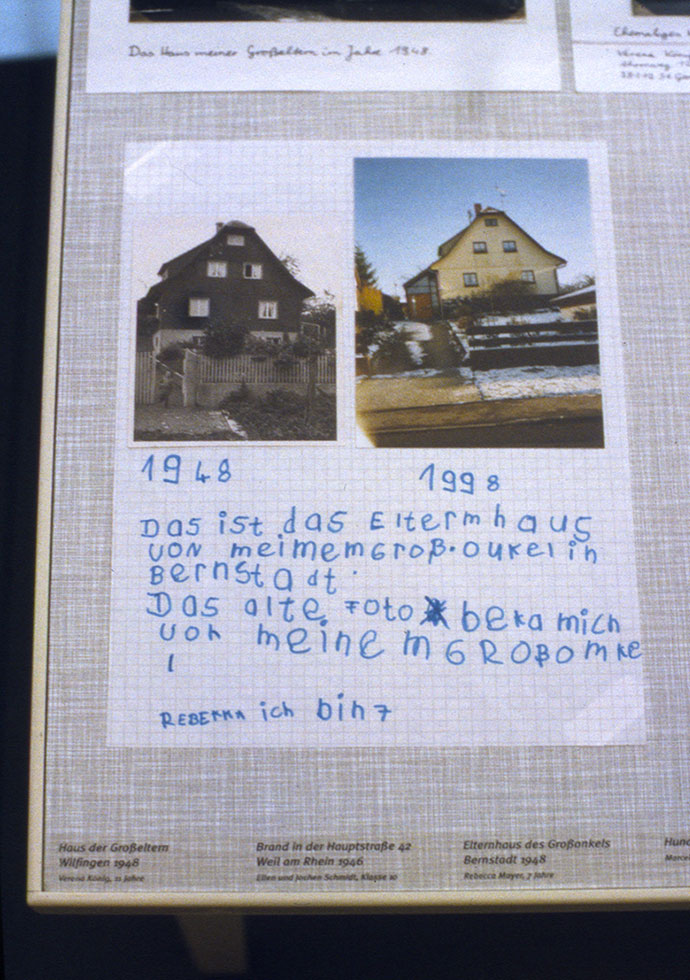 Das Haus meiner Großeltern im Jahre 1948.
Ehemaliges
Verena
1948
1998
Das ist das Elternhaus
von meimem Groß.onkel in
Bernstadt.
Das alte Foto beka mich
von meinem GROßomke
l
REBEKKA ich bin 7
Haus der Großeltern
Wilfingen 1948
Verena König, 11 Jahre
Brand in der Hauptstraße 42
Weil am Rhein 1946
Ellen und Jochen Schmidt, Klasse 10
Elternhaus des Großonkels
Bernstadt 1948
Rebecca Mayer, 7 Jahre
Hund
Marcel